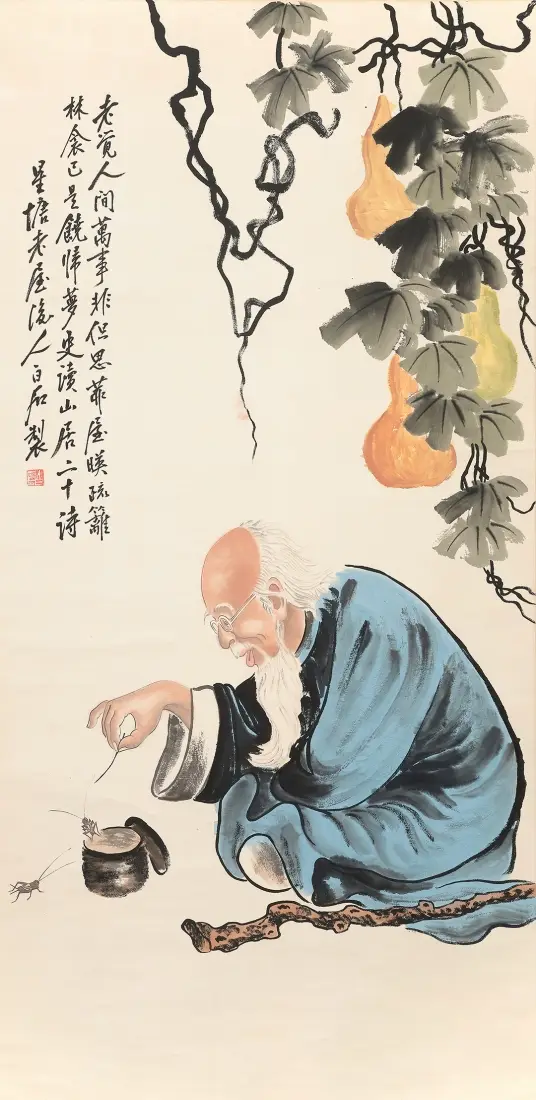 老覺人間萬事非但思茆屋暎疏籬
林衾已是饒歸夢更讀山居二十詩
星塘老屋後人白石製